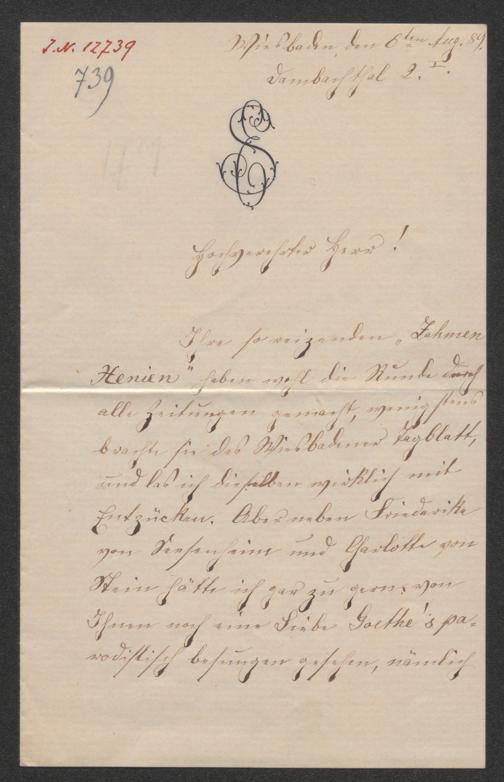 J.N. 12739
739
Wiesbaden, den 6ten Aug. 89.
Dambachthal 2. I.
Hochverehrter Herr!
Ihre so reizenden „Zahmen
Xenien" haben wohl die Runde durch
alle Zeitungen gemacht, wenigstens
brachte sie das Wiesbadener Tagblatt,
und las ich dieselben wirklich mit
Entzücken. Aber neben Friederike
von Sesenheim und Charlotte von
Stein hätte ich gar zu gern von
Ihnen noch eine Liebe Goethe's pa-
rodistisch besungen gesehen, nämlich